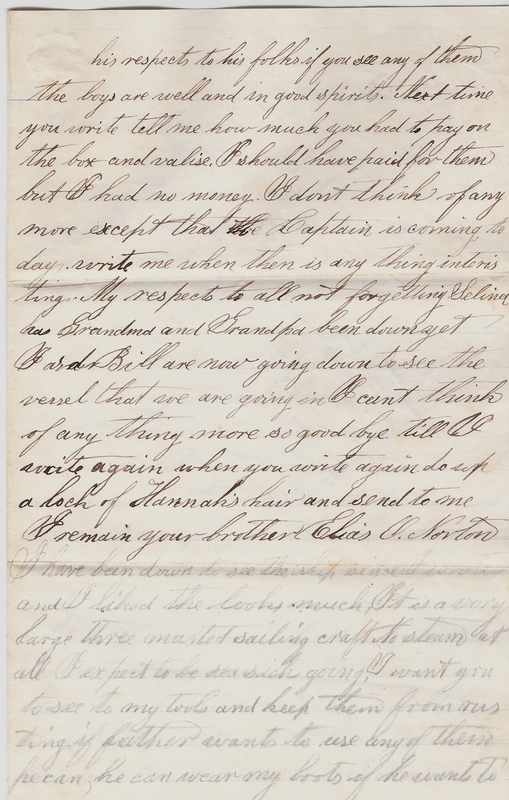 his respects to his folks if you see any of them
the boys are well and in good spirits. Next time
you write tell me how much you had to pay on
the box and valise. I should have paid for them
but I had no money. I dont think of any
more except that the Captain is coming to
day. write me when then is any thing interis
ting. My respects to all not forgetting Selina
has Grandma and Grandpa been down yet
I and Bill are now going down to see the
vessel that we are going in I cant think
of any thing more so good bye till I
write again when you write again do up
a lock of Hannah's hair and send to me
I remain your brother Elias O. Norton
I have been down to see the ship since I
and I liked the looks much, It is a very
large three masted sailing craft no steam at
all I expect to be sea sick going, I want you
to see to my tools and keep them from rus
ting if father wants to use any of them
he can, he can wear my boots if he wants to